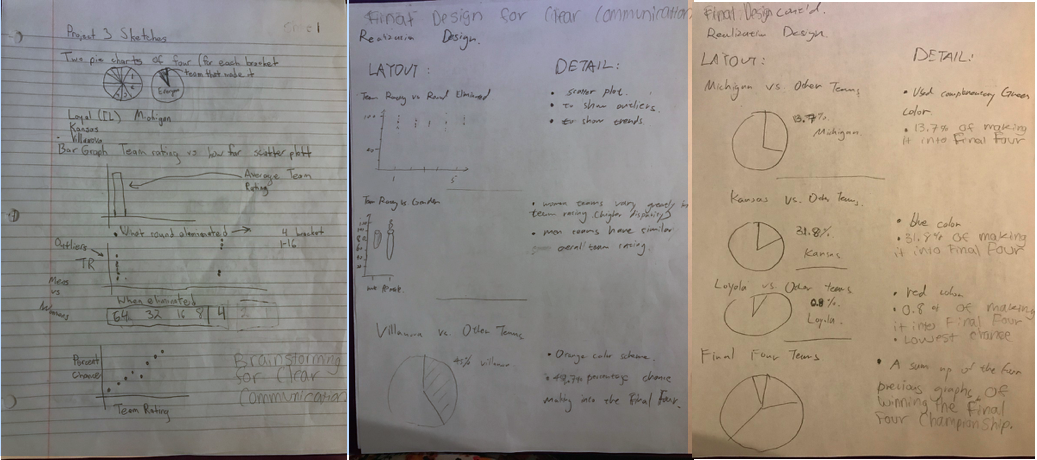 Project 3 Sketches
Two pie charts of four (for each bracket
team that made it
Loyal (IL) Michigan
Kansas
Villanova
Bar Graph Team rating vs low for scatter plot
Average Team
Rating
What round eliminated → 4 bracket
1-16
Outliers
TR
Mens
vs
Womens
When eliminated
64 32 16 8 4 2
Percent
Chance
Team Rating
Brainstorming
for Clear
Communication
Final Design for Clear Communication
Realization Design.
LAYOUT:
DETAIL:
Team Rating vs Round Elimined
• scatter plot.
• to show outliers.
• to show trends.
1 5
Team Rating vs Gender
• women teams vary greatly in
team rating (higher disparity)
• men teams have similar
overall team rating.
Villanova vs. Other Teams
45% villanova
• Orange color scheme.
percentage chance
making into the Final Four.
Final Design cont'd.
Realization Design.
LAYOUT:
DETAIL:
Michigan vs Other Teams
13.7%
Michigan.
• Used complementary Green
color.
• 13.7% of making
it into Final Four
Kansas vs. Other Teams.
31.8%
Kansas
• blue color
• 31.8% of making
it into Final Four
Loyola vs Other Teams
0.8%
Loyola.
• red color
• 0.8% of making
it into Final Four
• Lowest chance
Final Four Teams
• A sum up of the four
previous graphs of
winning the Final
Four Championship.